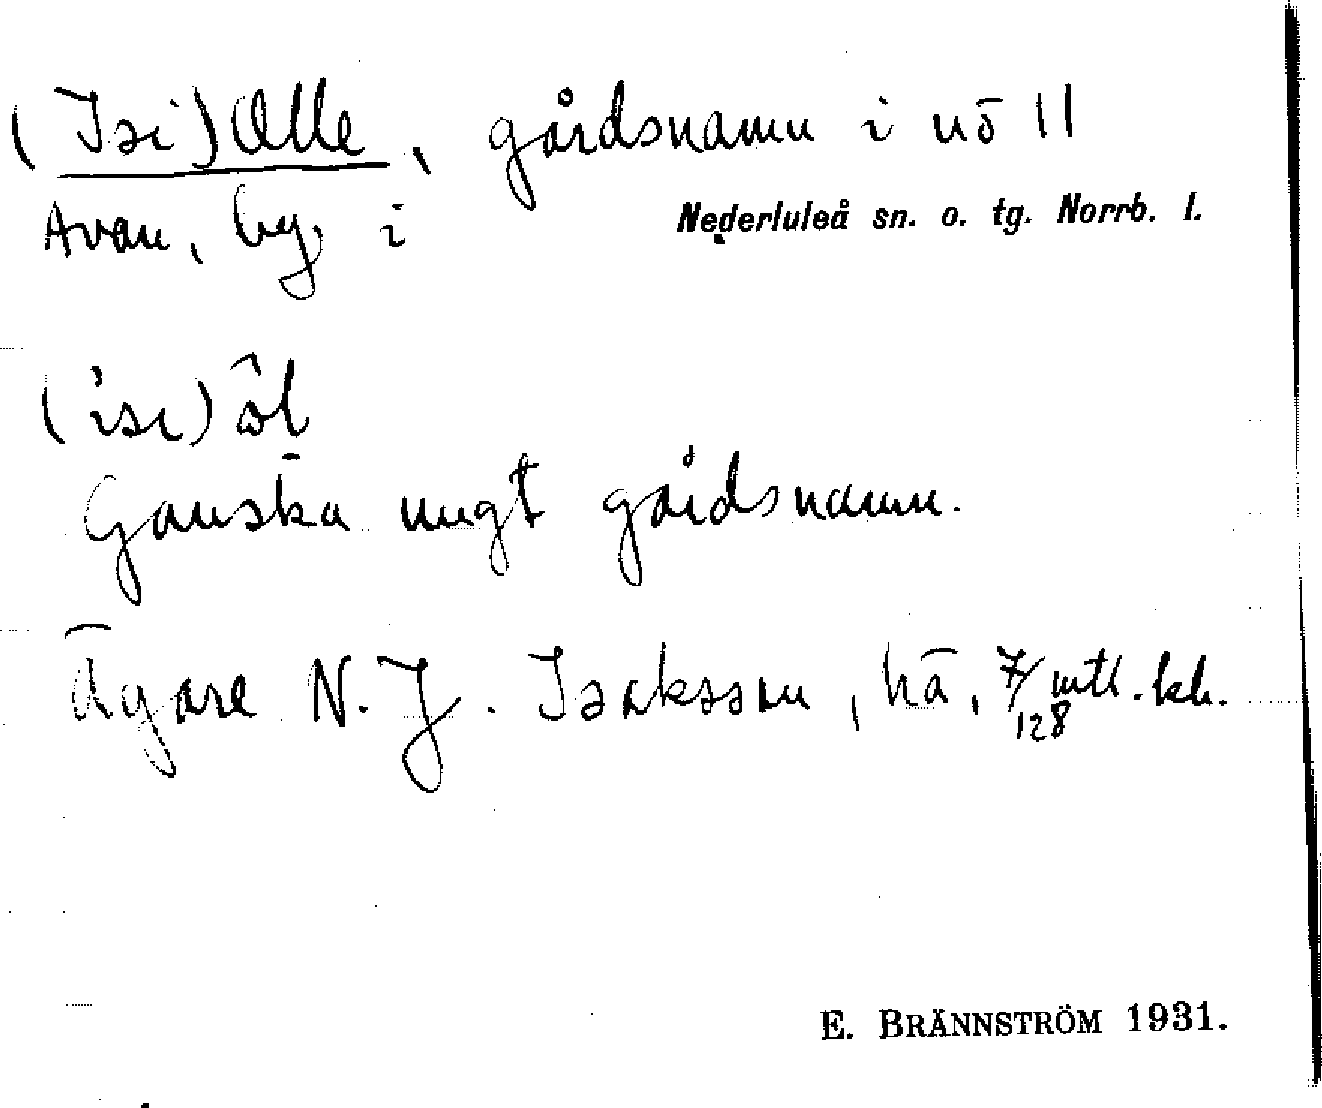 (Isi)Olle, gårdsnamn i nö 11
Avan, by, i Nederluleå sn. o. tg. Norrb. l.
(isi)
Ganska ungt gårdsnamn.
Ägare N. J. Isaksson, hä, 7/128 mtl. kh.
E. BRÄNNSTRÖM 1931.